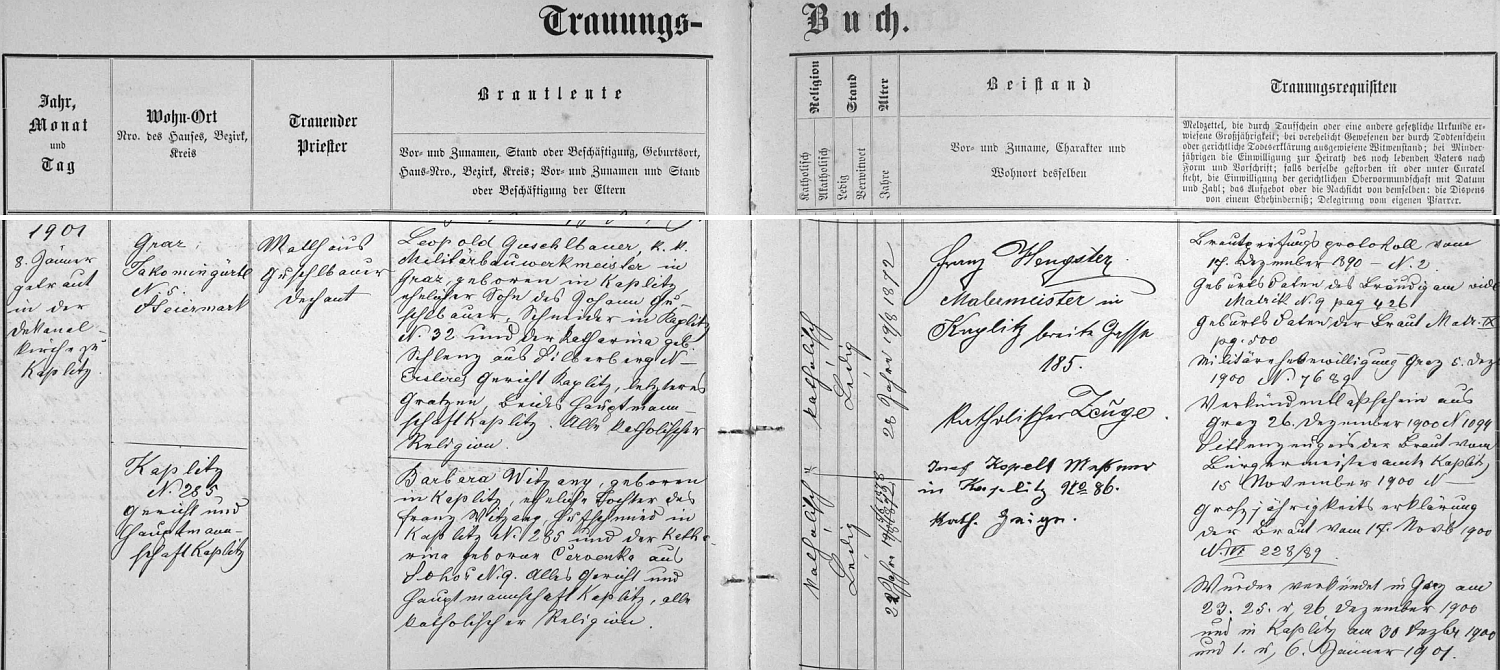 Trauungs-
Buch.
Jahr,
Monat
und
Tag
Wohn-Ort
Nro. des Hauses, Bezirk,
Kreis
Trauender
Priester
Brautleute
Vor- und Zunamen, Stand oder Beschäftigung, Geburtsort,
Haus-Nro., Bezirk, Kreis; Vor- und Zunamen und Stand
oder Beschäftigung der Eltern
Religion
Katholisch
Akatholisch
Stand
Ledig
Verwitwet
Alter
Jahre
Beistand
Vor- und Zuname, Charakter und
Wohnort desselben
Trauungsrequisiten
Meldzettel, die durch Taufschein oder eine andere gesetzliche Urkunde er-
wiesene Großjährigkeit; bei verehelicht Gewesenen der durch Todtenschein
oder gerichtliche Todeserklärung ausgewiesene Witwenstand; bei Minder-
jährigen die Einwilligung zur Heirath des noch lebenden Vaters nach
Form und Vorschrift; falls derselbe gestorben ist oder unter Curatel
steht, die Einwilligung der gerichtlichen Obervormundschaft mit Datum
und Zahl; das Aufgebot oder die Nachsicht von demselben: die Dispens
von einem Ehehinderniß; Delegirung vom eigenen Pfarrer.
1901
8. Jänner
getraut
in der
Dekanal-
kirche zu
Kaplitz.
Graz,
Jakominigürtl
N. 5.
Steiermark
Matthäus
Guschlbauer
Dechant
Leopold Guschlbauer, k. k.
Militärbauwerkmeister in
Graz, geboren in Kaplitz,
ehelicher Sohn des Johann Gu-
schlbauer, Schneider in Kaplitz
N. 32 und der Katharina geb.
Schlenz aus N
Ersteres Gericht Kaplitz, letzteres
Gratzen, beides Hauptmann-
schaft Kaplitz. Alle katholischer
Religion.
Kaplitz
N. 285
Gericht und
Hauptmann-
schaft Kaplitz
Barbara Witzany, geboren
in Kaplitz, eheliche Tochter des
Franz Witzany, Hufschmied in
Kaplitz N. 285 und der Katha-
rina geborne Červenka aus
N. 9. Alles Gericht und
Hauptmannschaft Kaplitz, alle
katholischer Religion.
Katholisch
Ledig
28 Jahre 19/8 1872
Katholisch
Ledig
22 Jahre
Franz Wengster
Malermeister in
Kaplitz breite Gasse
185.
Katholischer Zeuge.
Josef Kopelt Meßner
in Kaplitz No 86.
Kath. Zeige.
Brautprüfungsprotokoll vom
17. Dezember 1890 – N. 2
Geburtsdaten des Bräutigam vide
Matrik N. 9 pag 426
Geburtsdaten der Braut Matr. IX
pg. 500
Militärehebewilligung Graz 5. Dez
1900 N. 7689
Verkündentlaßschein aus
Graz 26. Dezember 1900 N 1094
Sittenzeugnis der Braut vom
Bürgermeisteramte Kaplitz
15 November 1900 N —
Großjährigkeitserklärung
der Braut vom 17. Novb 1900
N. 228/89.
Wurden verkündet in Graz am
23. 25. u. 26 Dezember 1900
und in Kaplitz am 30 Dezbr 1900
und 1. u. 6. Jänner 1901.